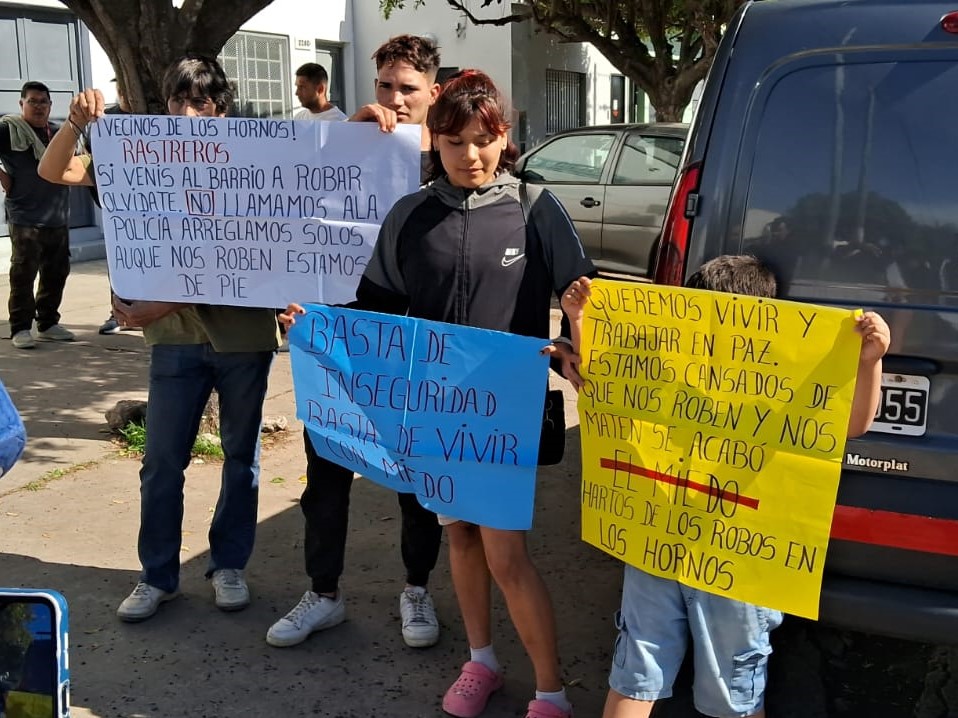 ¡VECINOS DE LOS HORNOS!
RASTREROS
SI VENIS AL BARRIO A ROBAR
OLVIDATE. NO LLAMAMOS ALA
POLICÍA ARREGLAMOS SOLOS
AUQUE NOS ROBEN ESTAMOS
DE PIE
BASTA DE
INSEGURIDAD
BASTA DE VIVIR
CON MIEDO
QUEREMOS VIVIR Y
TRABAJAR EN PAZ.
ESTAMOS CANSADOS DE
QUE NOS ROBEN Y NOS
MATEN SE ACABÓ
EL MIEDO
HARTOS DE LOS ROBOS EN
LOS HORNOS
055
Motorplat